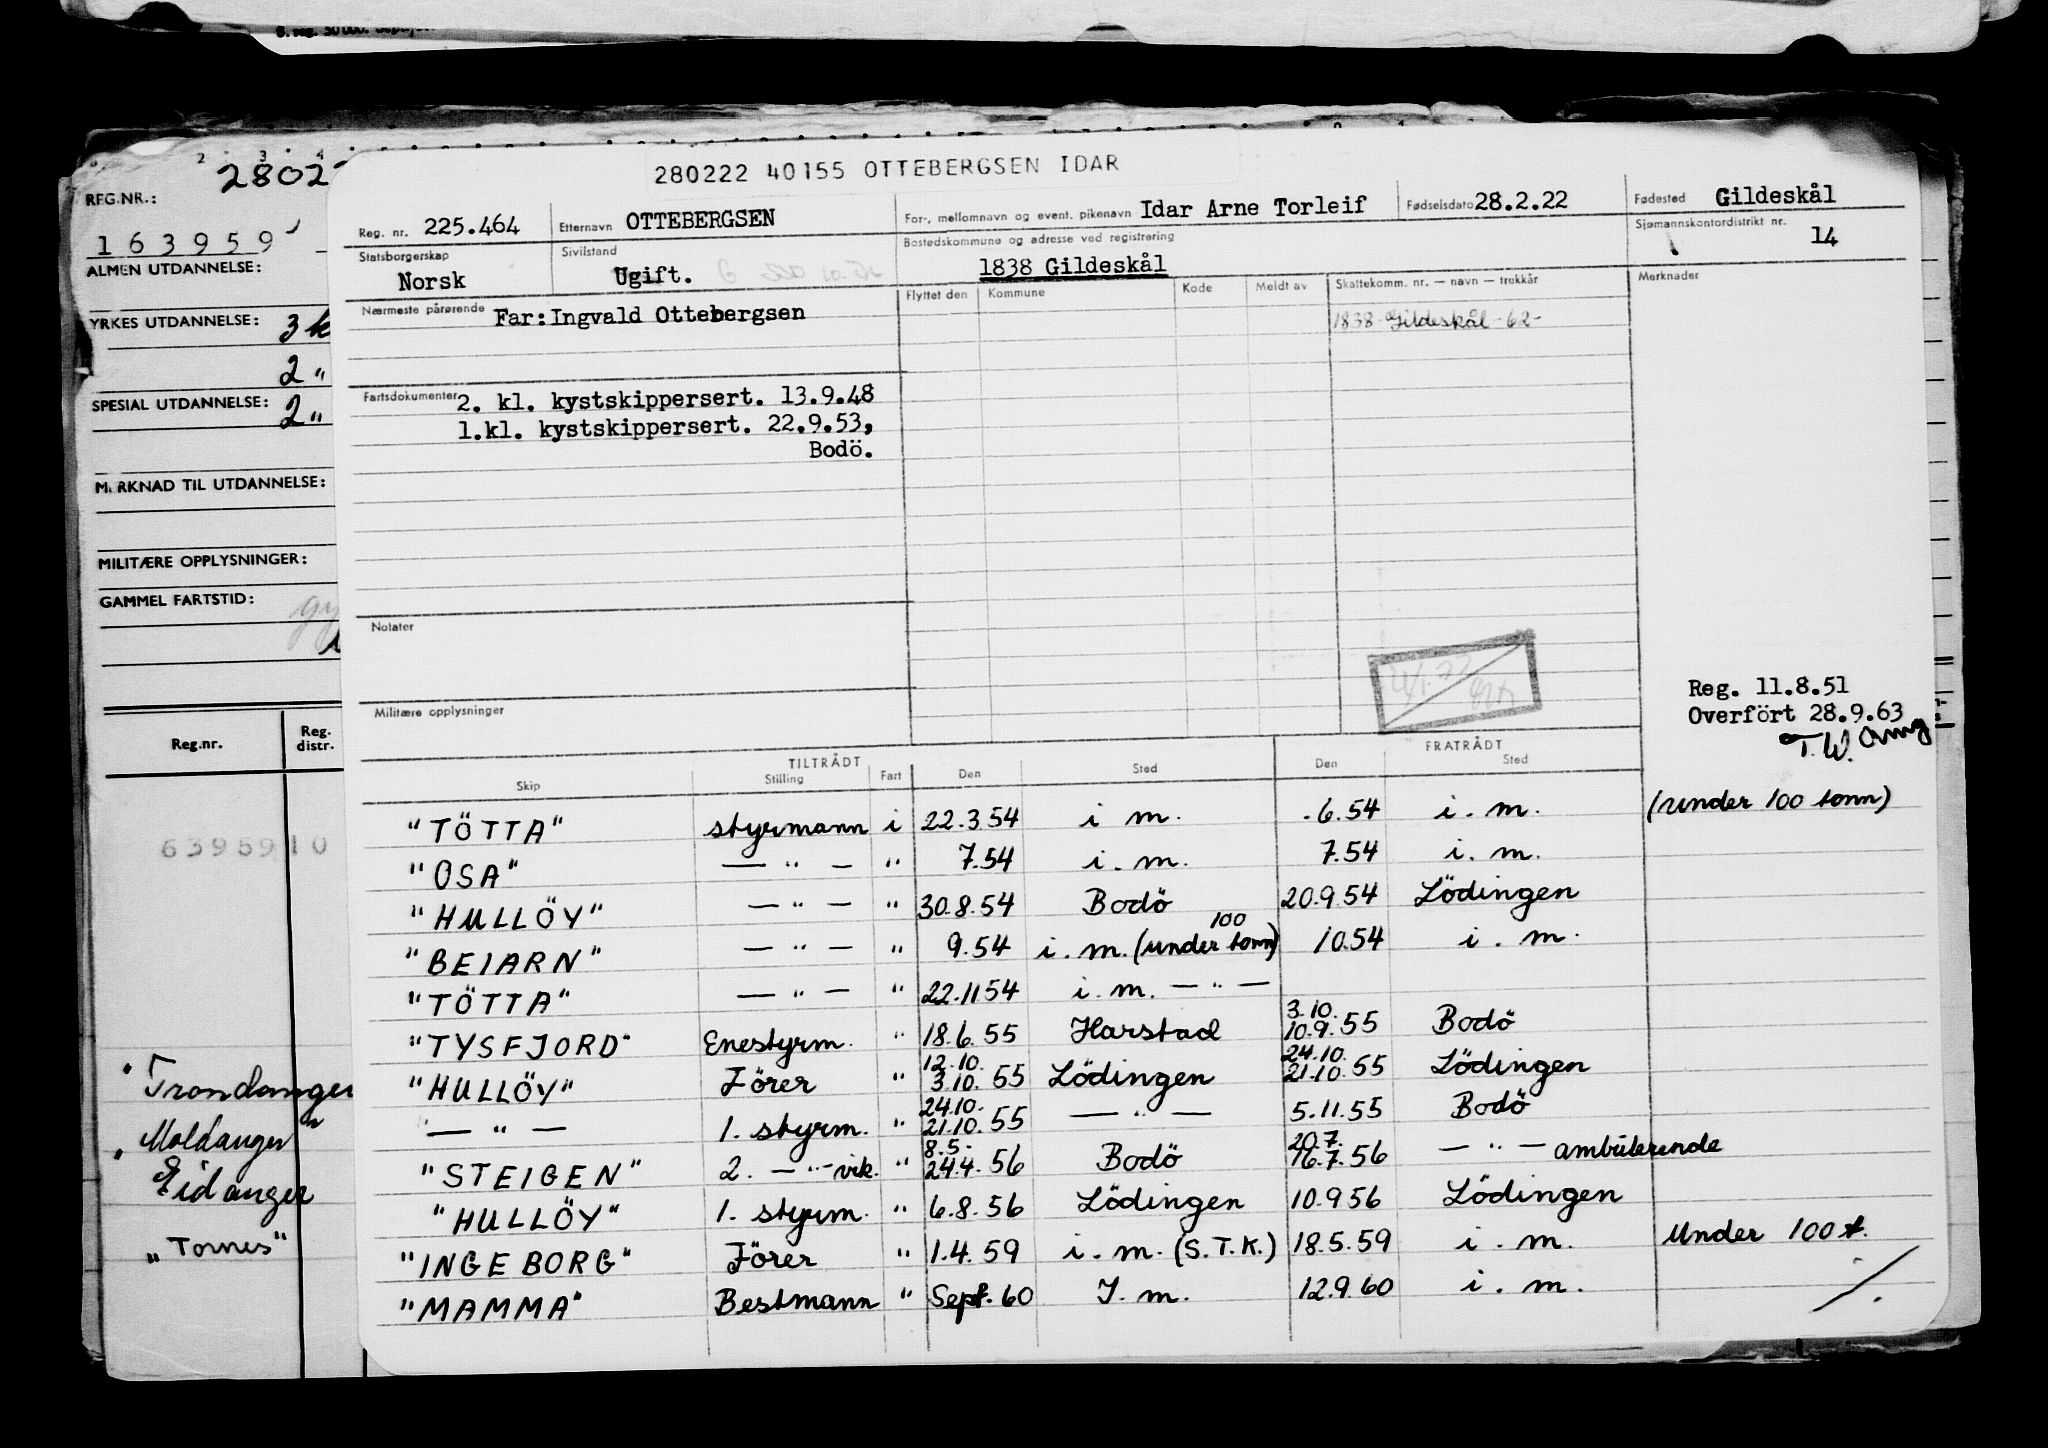 2 3 4
2802
REG.NR.:
163959
ALMEN UTDANNELSE:
YRKES UTDANNELSE: 3 k
2 "
SPESIAL UTDANNELSE: 2 "
MERKNAD TIL UTDANNELSE:
MILITÆRE OPPLYSNINGER:
GAMMEL FARTSTID:
Reg.nr. Reg. distr.
63959 10
"Trondanger
"Moldanger"
Eidanger
"Tornes"
280222 40155 OTTEBERGSEN IDAR
Reg. nr. 225.464 Etternavn OTTEBERGSEN For-, mellomnavn og event. pikenavn Idar Arne Torleif Fødselsdato 28.2.22 Fødested Gildeskål
Statsborgerskap Norsk Sivilstand Ugift. Bostedskommune og adresse ved registrering 1838 Gildeskål Sjømannskontordistrikt nr. 14
Nærmeste pårørende Far: Ingvald Ottebergsen Flyttet den Kommune Kode Meldt av Skattekomm. nr. — navn — trekkår Merknader
1838 - Gildeskål - 62 -
Fartsdokumenter 2. kl. kystskippersert. 13.9.48
1.kl. kystskippersert. 22.9.53,
Bodö.
Notater
Militære opplysninger
Reg. 11.8.51
Overfört 28.9.63
T.W.
TILTRÅDT FRATRÅDT
Skip Stilling Fart Den Sted Den Sted
"TÖTTA" styrmann i 22.3.54 i m. .6.54 i. m. (under 100 tonn)
"OSA" — " — " 7.54 i. m. 7.54 i. m.
"HULLÖY" — " — " 30.8.54 Bodö 20.9.54 Lödingen
"BEIARN" — " — " 9.54 i. m. (under 100 tonn) 10.54 i. m.
"TÖTTA" — " — " 22.11.54 i. m. — " —
"TYSFJORD" Enestyrm. " 18.6.55 Harstad 3.10. 10.9.55 Bodö
"HULLÖY" Förer " 12.10. 3.10.55 Lödingen 24.10. 21.10.55 Lödingen
— " — 1. styrm. " 24.10. 21.10.55 — " — 5.11.55 Bodö
"STEIGEN" 2. — " — vik. " 8.5. 24.4.56 Bodö 20.7. 16.7.56 — " — ambulerende
"HULLÖY" 1. styrm. " 6.8.56 Lödingen 10.9.56 Lödingen
"INGEBORG" Förer " 1.4.59 i. m. (S.T.K.) 18.5.59 i. m. Under 100 t.
"MAMMA" Bestmann " Sept. 60 I. m. 12.9.60 i. m. ./.